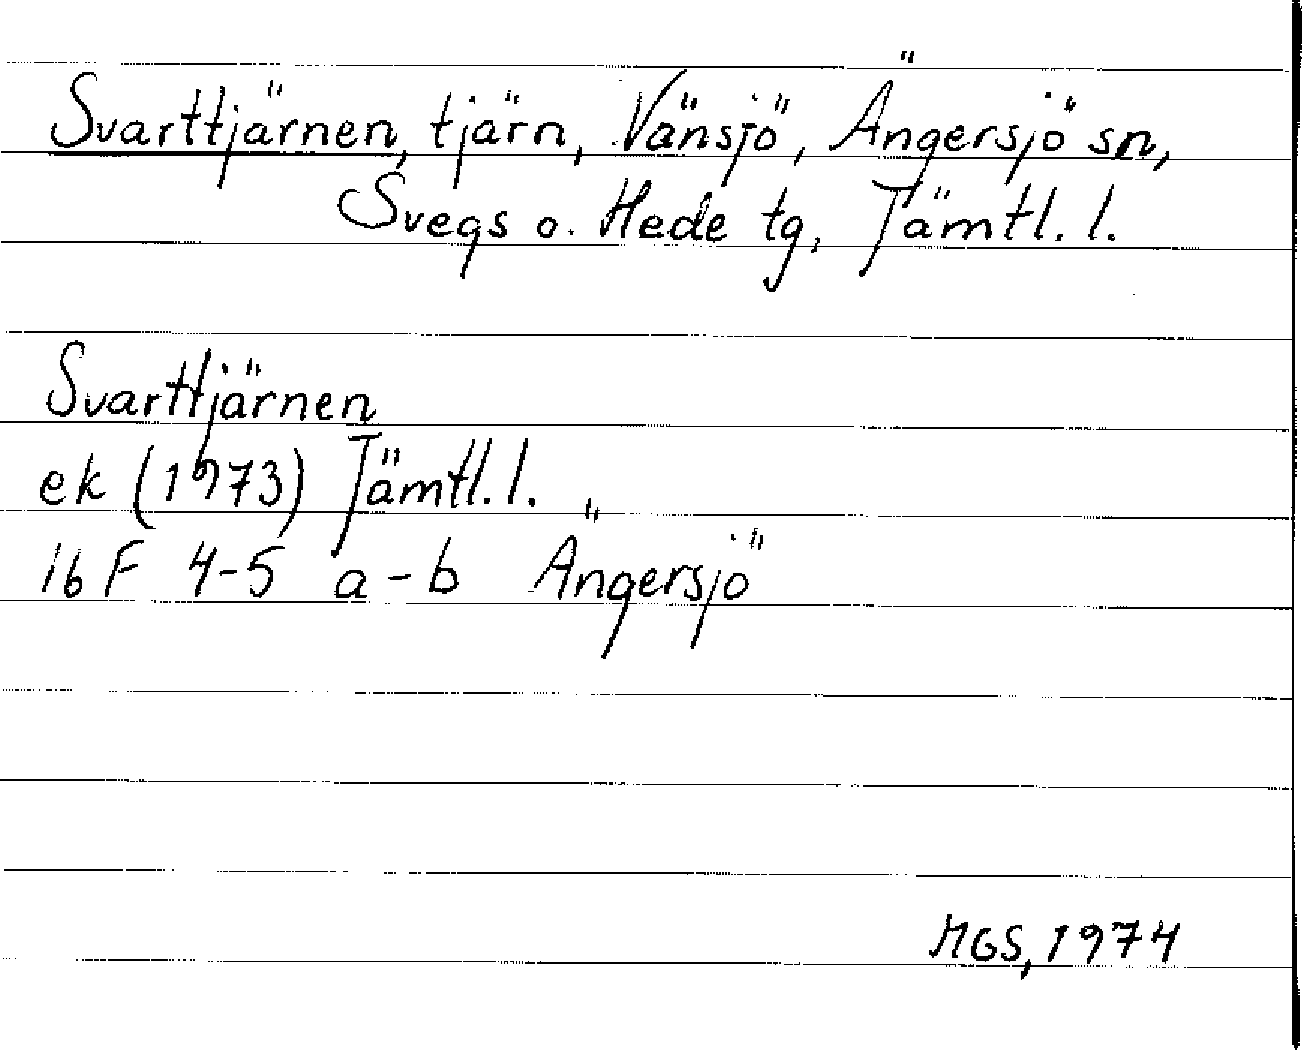 Svarttjärnen, tjärn, Vänsjö, Ängersjö sn,
Svegs o. Hede tg, Jämtl. l.
Svarttjärnen
ek (1973) Jämtl. l.
16 F 4-5 a-b Ängersjö
MGS, 1974